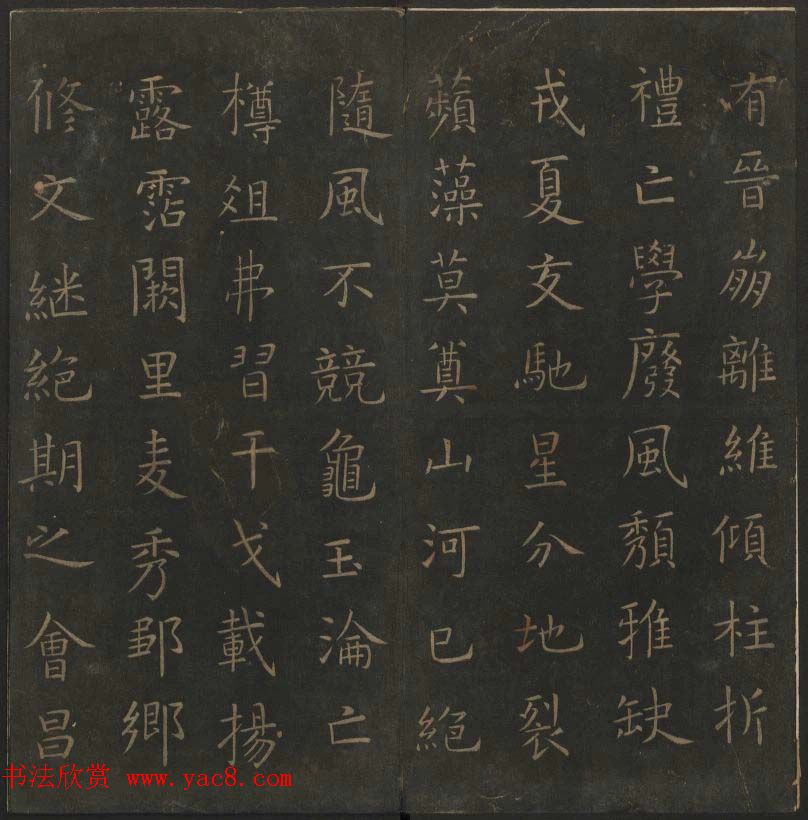 有晉崩離維傾柱折
禮亡學廢風頽雅缺
戎夏交馳星分地裂
蘋藻莫奠山河已絕
隨風不競龜玉淪亡
樽俎弗習干戈載揚
露霑闕里麦秀鄒鄉
脩文継絕期之會昌
书法欣赏 www.yac8.com